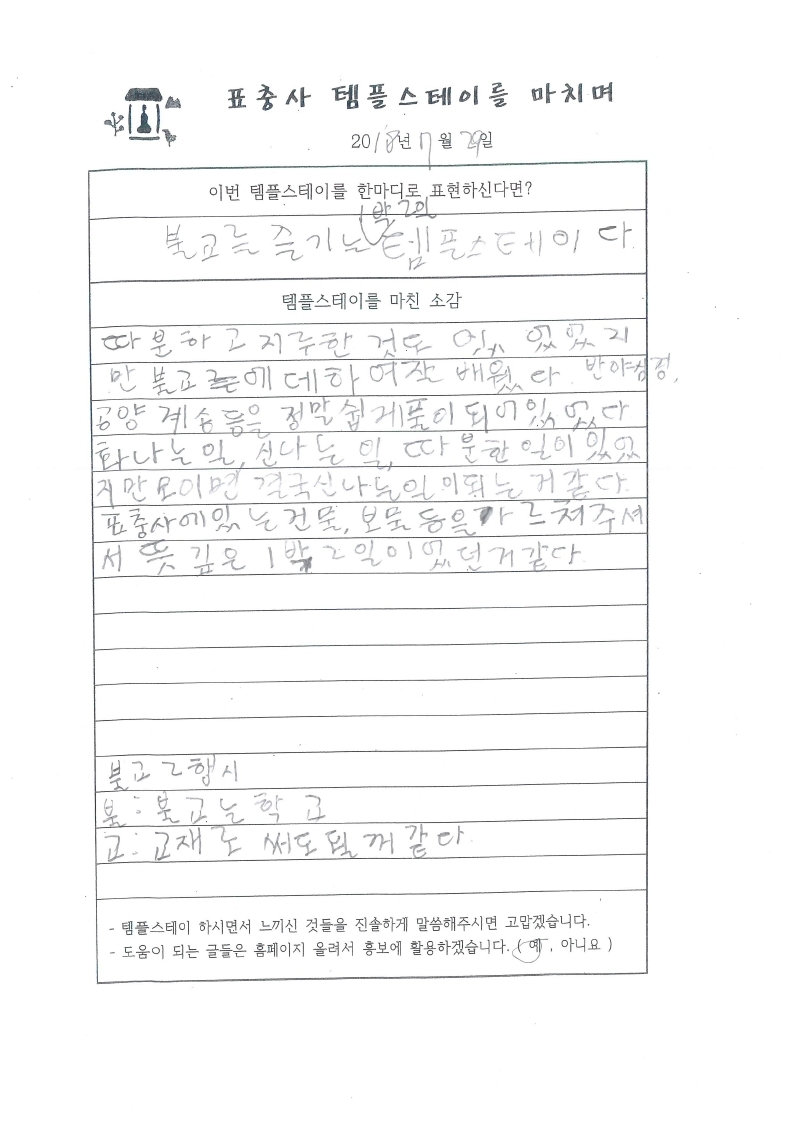 표충사 템플스테이를 마치며
2018년 7월 29일
이번 템플스테이를 한마디로 표현하신다면?
1박2일
불교를 즐기는 템플스테이다
템플스테이를 마친 소감
따분하고 지루한 것도 있었지
만 불교에 데하여 작 배웠다 반야심경,
공양 계송등을 정말 쉽게 풀이되어있었다
화나는 일, 신나는 일, 따분한 일이 있었
지만 모이면 결국신나는일이되는거같다.
표충사에있는건물, 보물등을 가르쳐주셔
서 뜻 깊은 1박 2일이었던거같다
불교 2행시
불: 불교는 학교
교: 교재로 써도될꺼같다
- 템플스테이 하시면서 느끼신 것들을 진솔하게 말씀해주시면 고맙겠습니다.
- 도움이 되는 글들은 홈페이지 올려서 홍보에 활용하겠습니다. ( 예 , 아니요 )